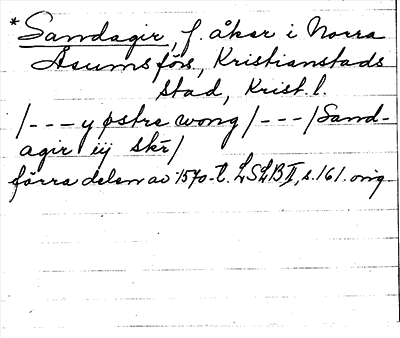 *Sandagir, f. åker i Norra
Åsums förs., Kristianstads
stad, Krist. l.
/---y østre wong/---/Sand-
agir iij skr/
förra delen av 1570-t. LSLB II, s. 161. orig.